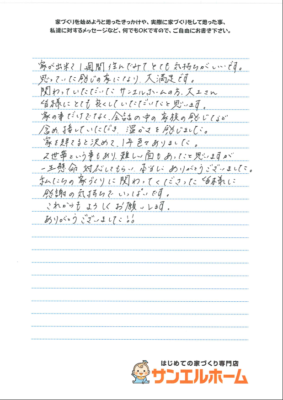 家づくりを始めようと思ったきっかけや、実際に家づくりをして思った事、
私達に対するメッセージなど、何でもOKですので、ご自由にお書き下さい。
家が出来て1週間住んでみてとても気持ちがいいです。
思っていた感じの家になり、大満足です。
関わっていただいた サンエルホームの方、大工さん
皆様にとても良くしていただいたと思います。
家の事だけでなく、会話の中の家族の感じなど
含め接していただき、温かさを感じました。
家を建てると決めて、1年色々ありました。
2世帯という事もあり、難しい面もあったと思いますが
一生懸命 対応してもらい 本当に ありがとうございました。
私たちの家づくりに関わってくださった皆様に
感謝の気持ちで いっぱいです。
これからも よろしく お願いします。
ありがとうございました!!
はじめての家づくり専門店
サンエルホーム